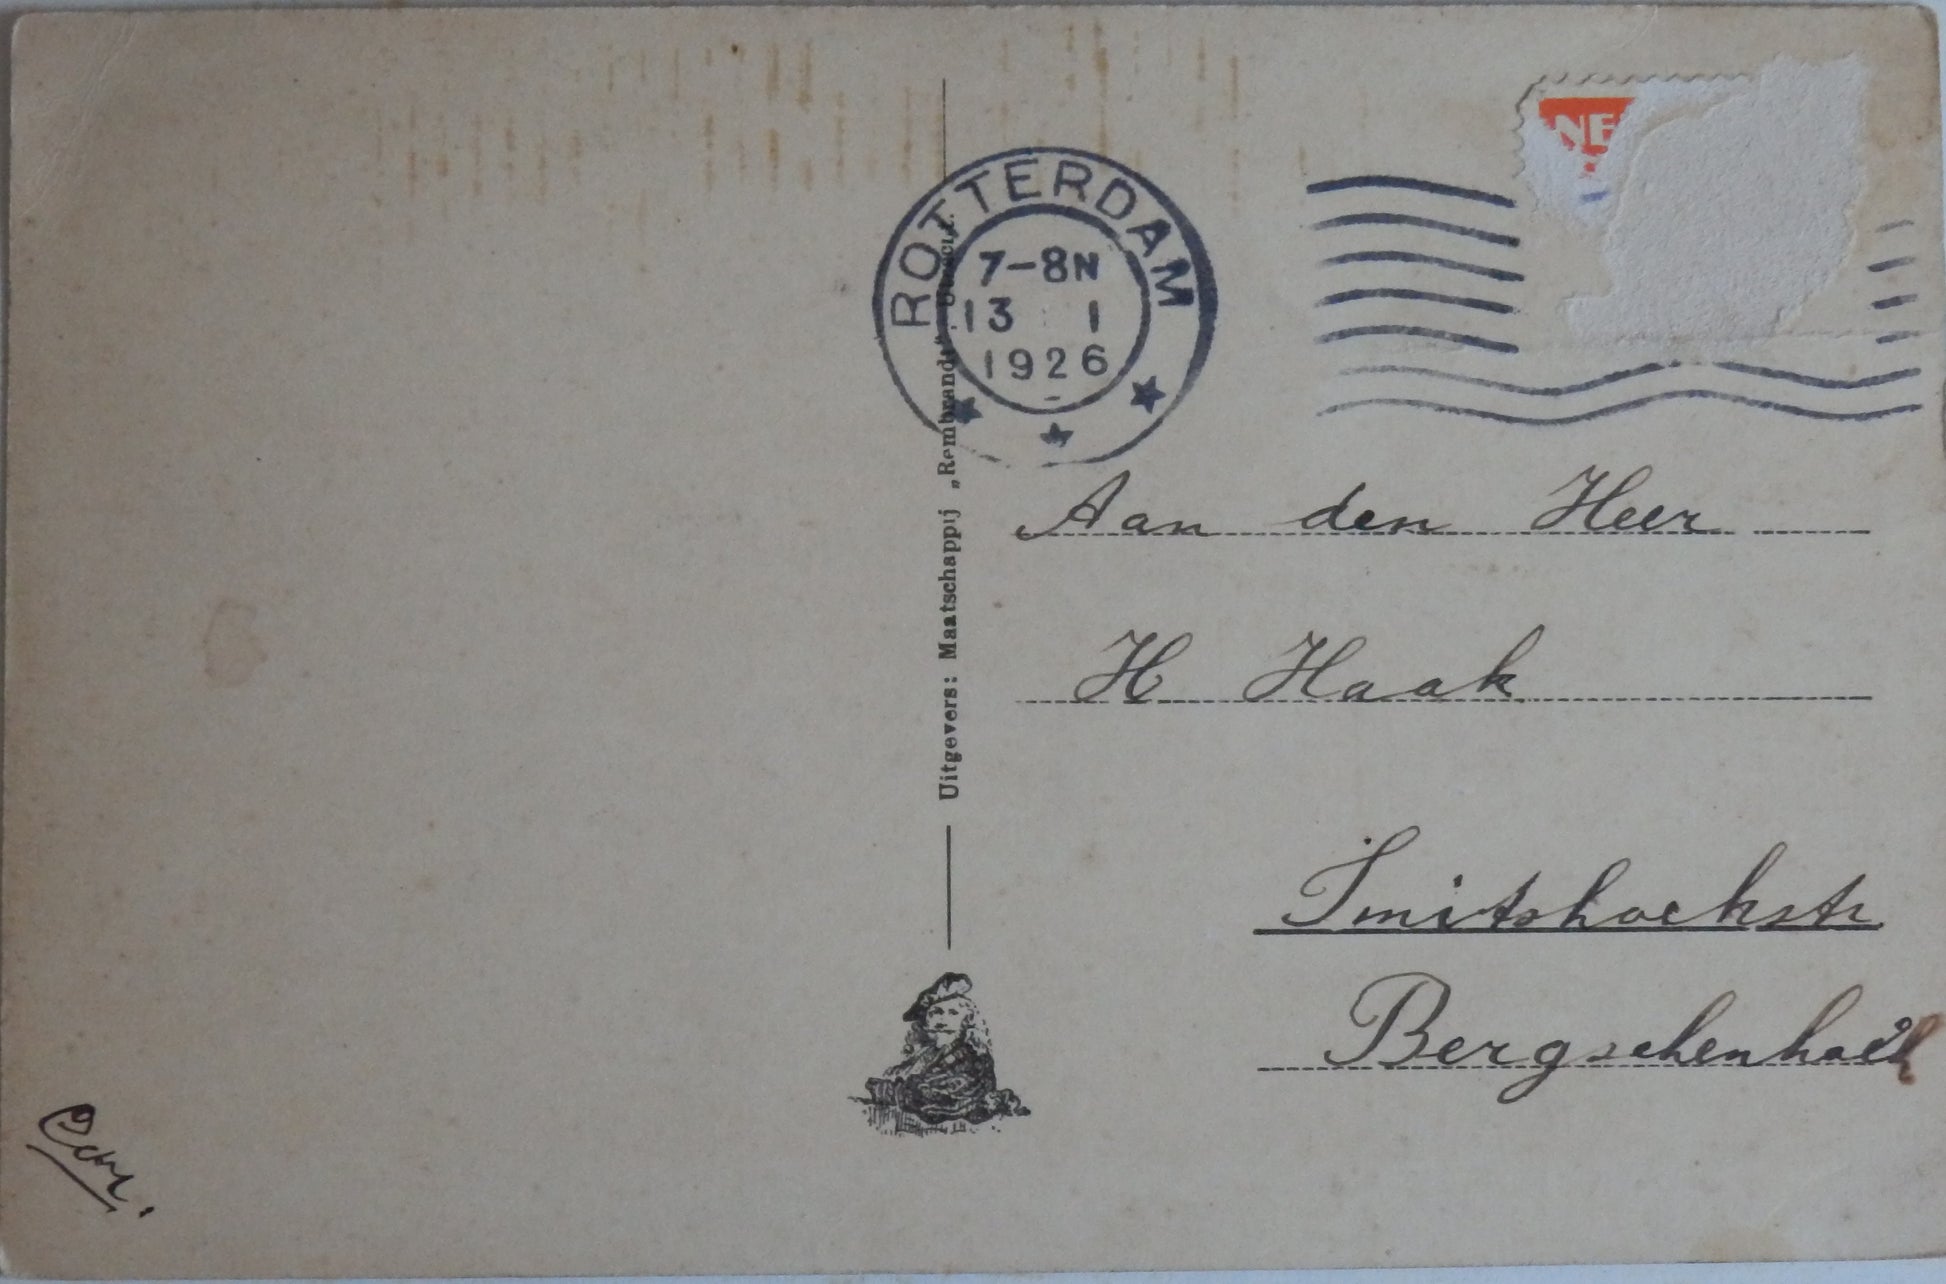 NE
ROTTERDAM
7-8N
13 1
1926
Uitgevers: Maatschappij „Rembrandt"
Aan den Heer
H Haak
Smitshoekstr
Bergschenhoek